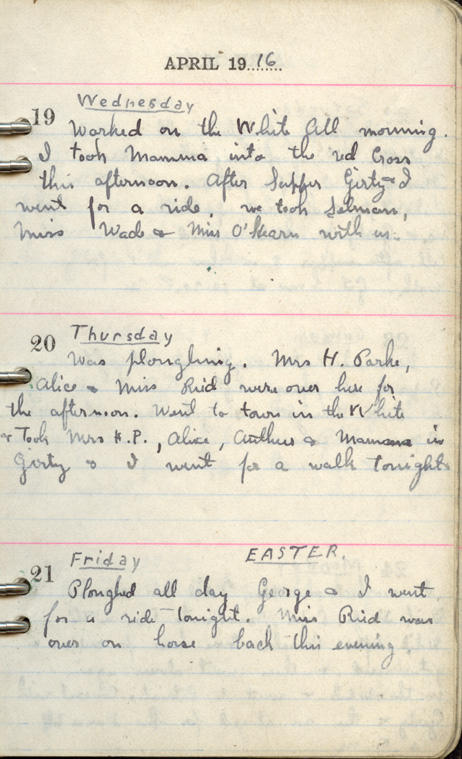 APRIL 19 16
19 Wednesday
Worked on the White all morning.
I took Mamma into the red Cross
this afternoon. After Supper Girty & I
went for a ride. we took Selman,
Miss Wade & Miss O'Hearn with us.
20 Thursday
Was ploughing. Mrs H. Parke,
Alice & Miss Reid were over here for
the afternoon. Went to town in the White
& Took Mrs H.P., Alice, & Mamma in
Girty & I went for a walk tonight
21 Friday EASTER.
Ploughed all day George & I went
for a ride tonight. Miss Reid was
over on horse back this evening